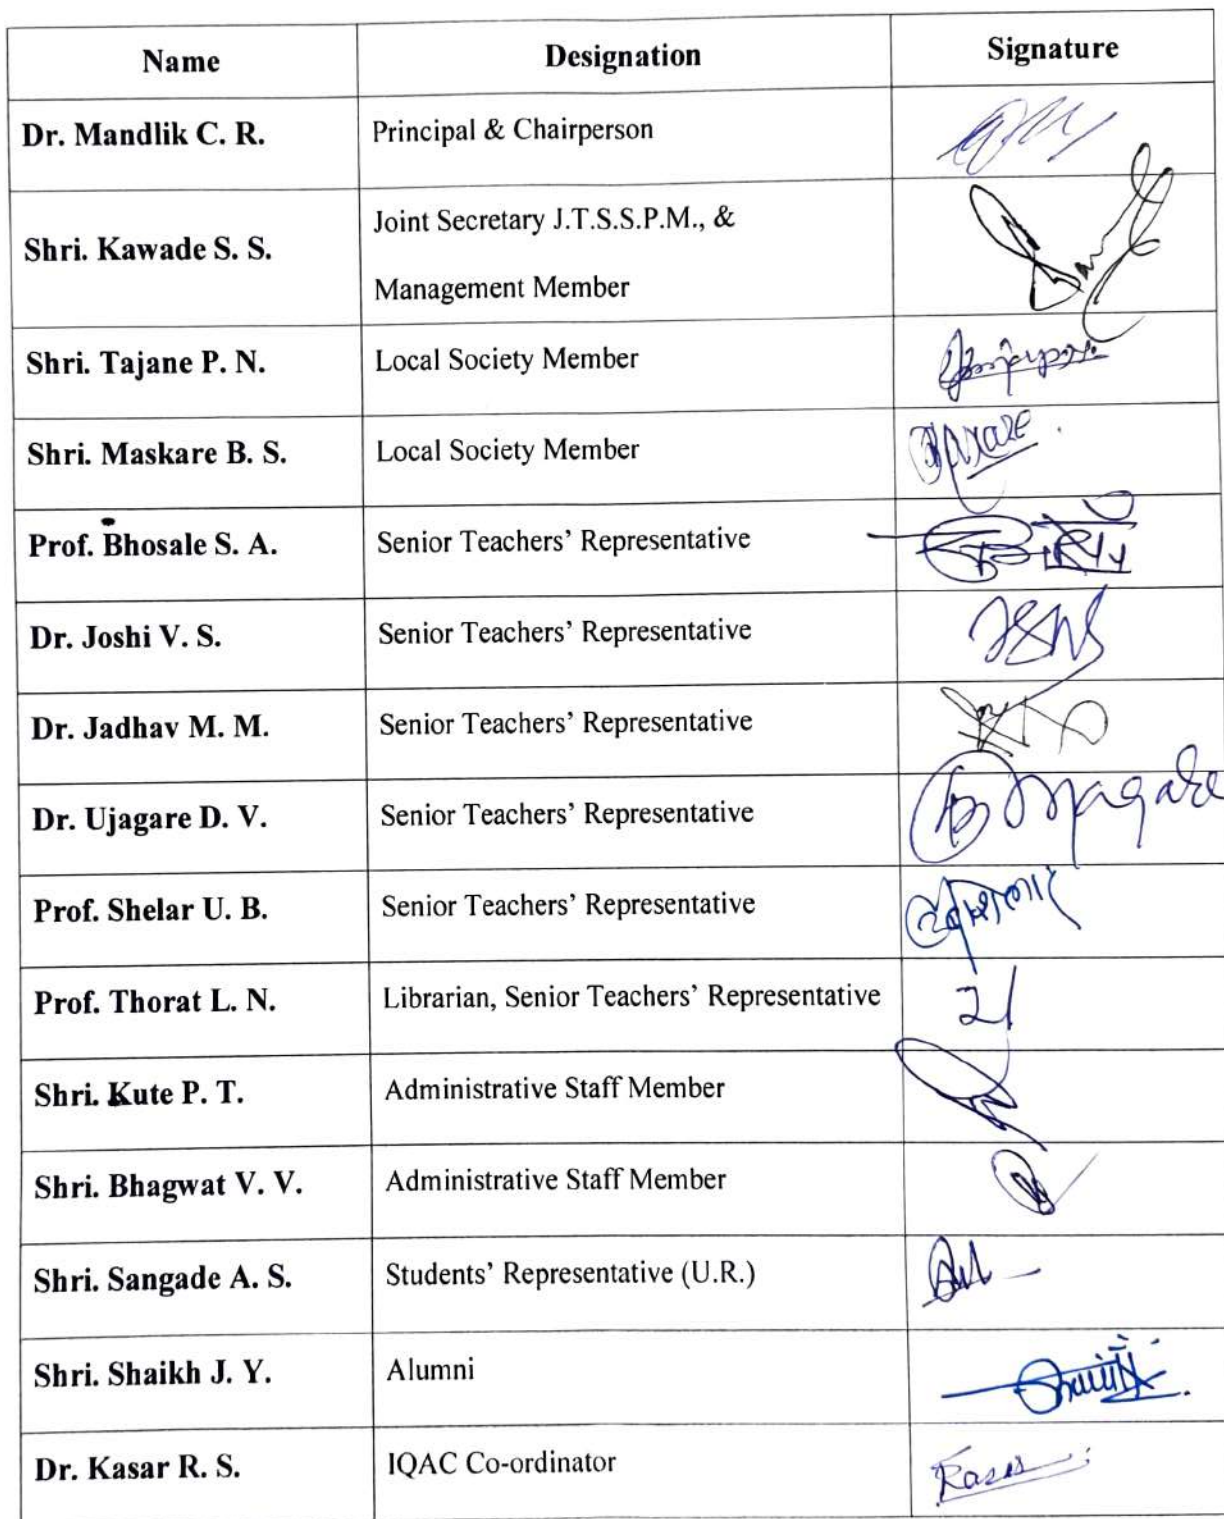 Name Designation Signature
Dr. Mandlik C. R. Principal & Chairperson
Shri. Kawade S. S. Joint Secretary J.T.S.S.P.M., &
Management Member
Shri. Tajane P. N. Local Society Member
Shri. Maskare B. S. Local Society Member
Prof. Bhosale S. A. Senior Teachers' Representative
Dr. Joshi V. S. Senior Teachers' Representative
Dr. Jadhav M. M. Senior Teachers' Representative
Dr. Ujagare D. V. Senior Teachers' Representative
Prof. Shelar U. B. Senior Teachers' Representative
Prof. Thorat L. N. Librarian, Senior Teachers' Representative
Shri. Kute P. T. Administrative Staff Member
Shri. Bhagwat V. V. Administrative Staff Member
Shri. Sangade A. S. Students' Representative (U.R.)
Shri. Shaikh J. Y. Alumni
Dr. Kasar R. S. IQAC Co-ordinator